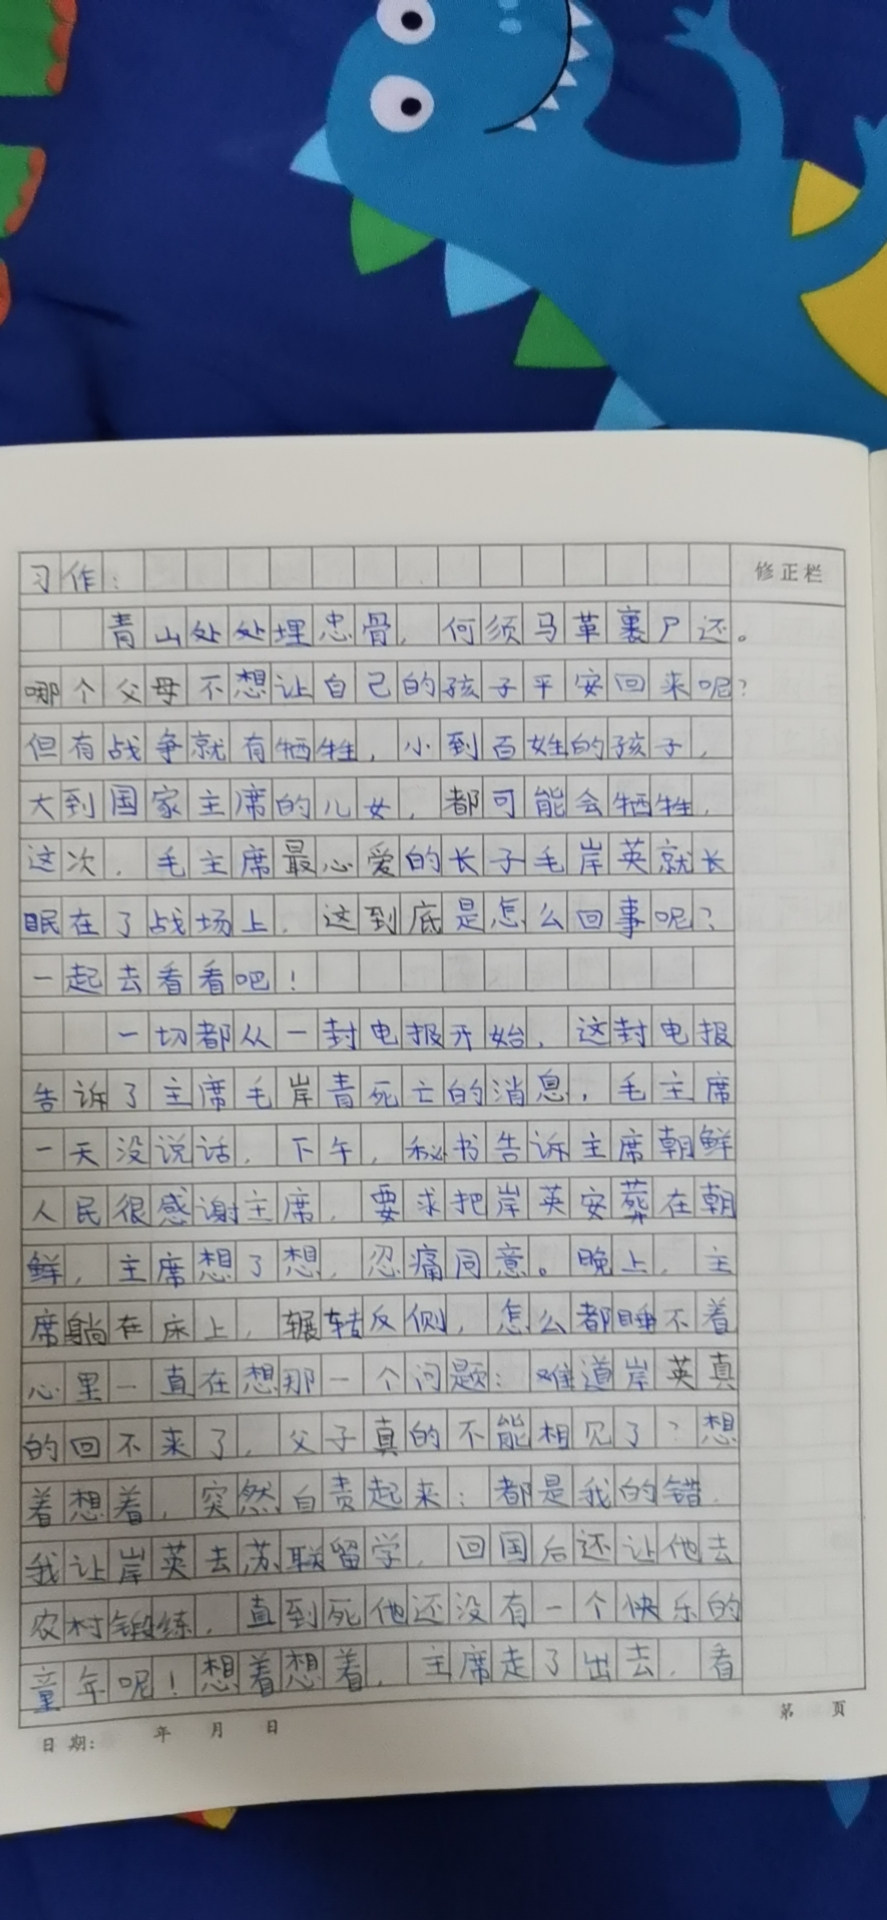 习作：
修正栏
青山处处埋忠骨，何须马革裹尸还。
哪个父母不想让自己的孩子平安回来呢？
但有战争就有牺牲，小到百姓的孩子，
大到国家主席的儿女，都可能会牺牲，
这次，毛主席最心爱的长子毛岸英就长
眠在了战场上，这到底是怎么回事呢？
一起去看看吧！
一切都从一封电报开始，这封电报
告诉了主席毛岸青死亡的消息，毛主席
一天没说话，下午，秘书告诉主席朝鲜
人民很感谢主席，要求把岸英安葬在朝
鲜，主席想了想，忍痛同意。晚上，主
席躺在床上，辗转反侧，怎么都睡不着
心里一直在想那一个问题：难道岸英真
的回不来了，父子真的不能相见了？想
着想着，突然自责起来：都是我的错，
我让岸英去苏联留学，回国后还让他去
农村锻练，直到死他还没有一个快乐的
童年呢！想着想着，主席走了出去，看
日期： 年 月 日
第 页